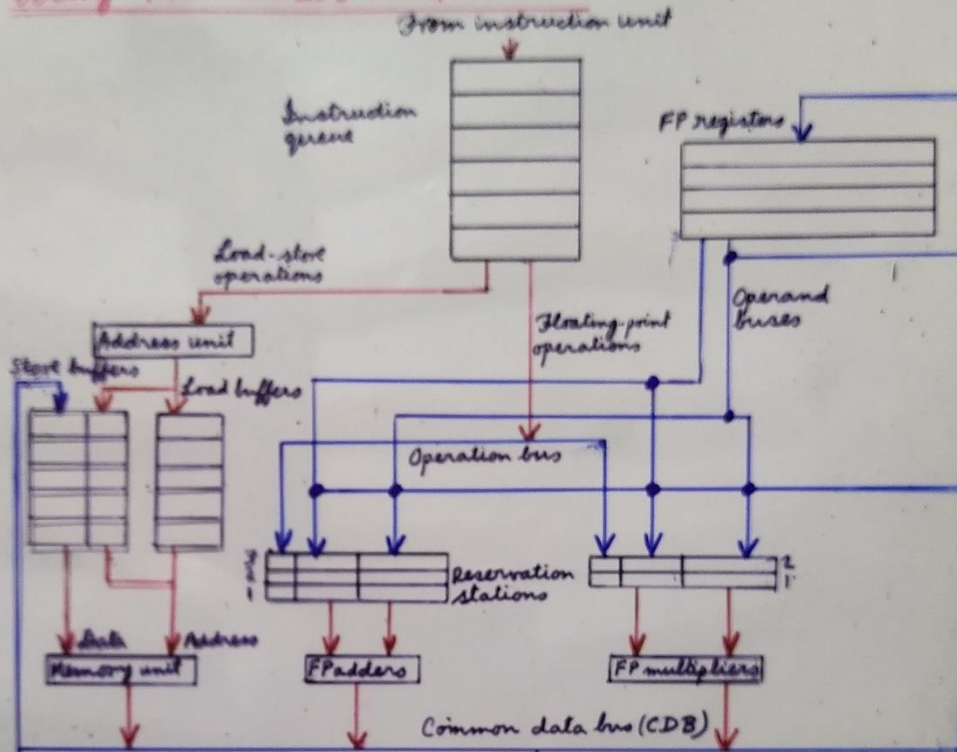 From instruction unit
Instruction
queue
FP registors
Load-store
operations
Operand
buses
Floating-point
operations
Address unit
Store buffers
Load buffers
Operation bus
3
2
1
Reservation
stations
2
1
Data
Address
Memory unit
FP adders
FP multipliers
Common data bus (CDB)